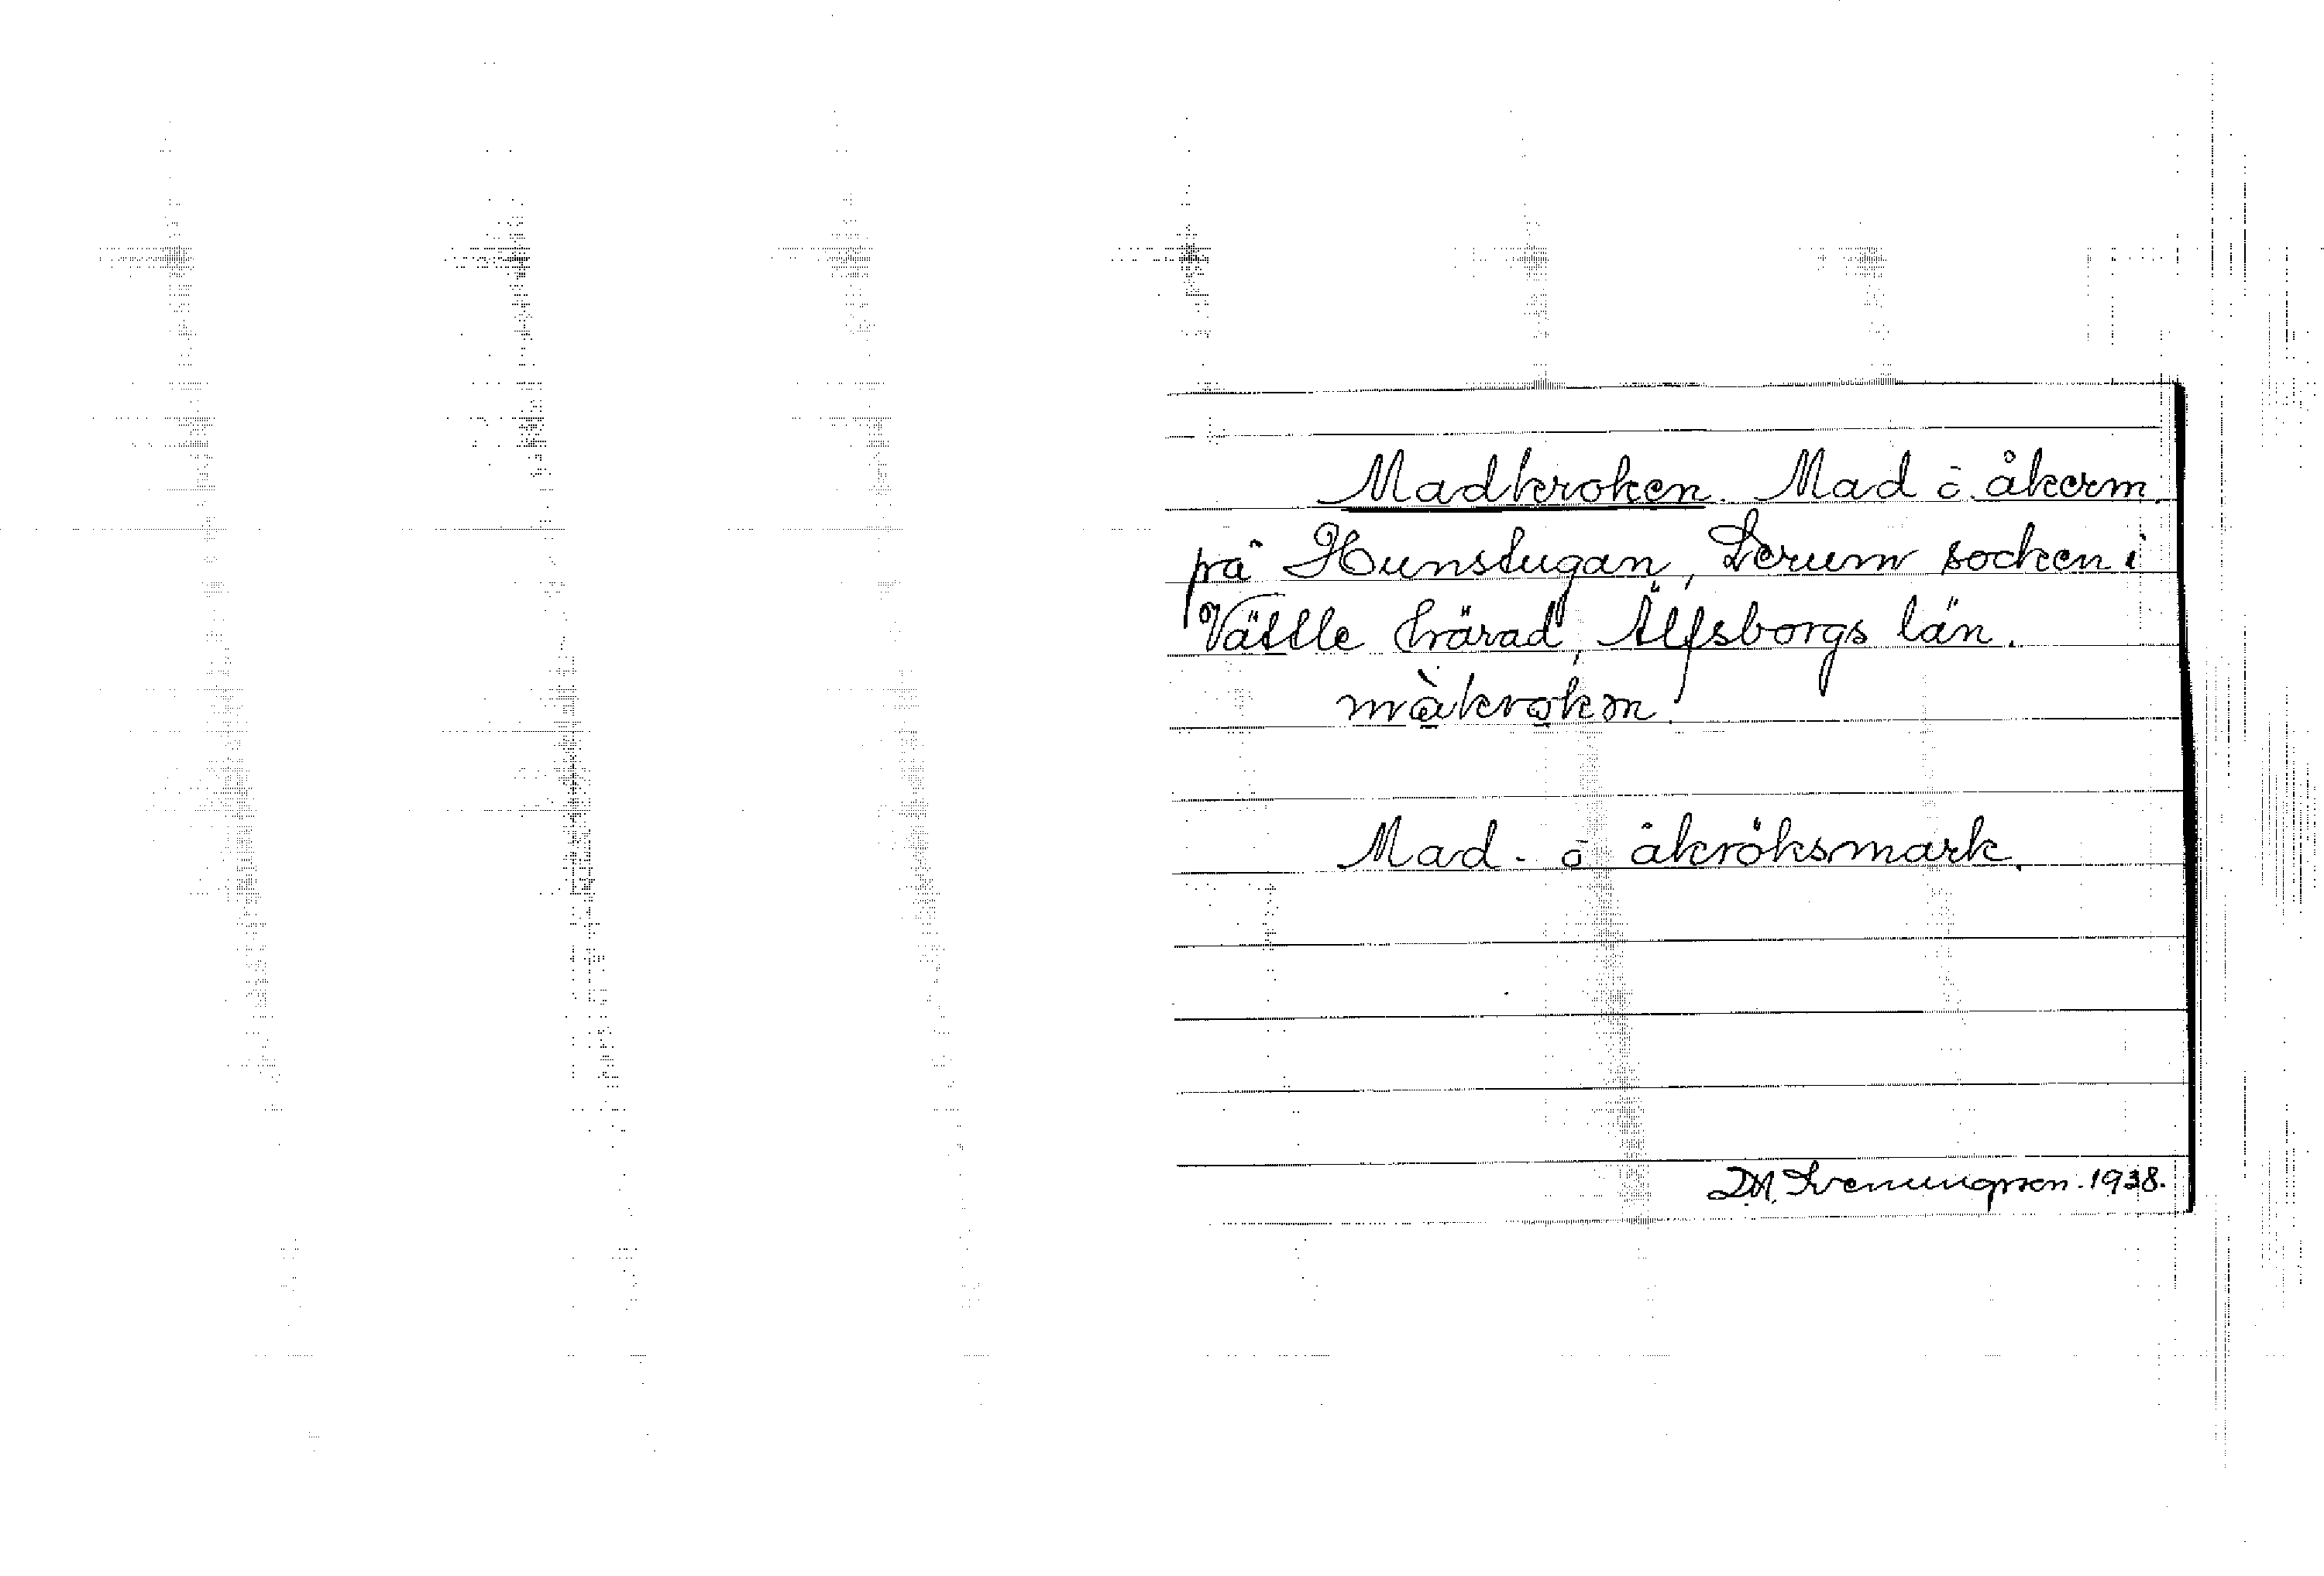 Madkroken. Mad ō åkerm.
på Hunstugan, Lerum socken i
Vättle härad, Älfsborgs län.
màkrokɘn.
Mad- ō åkröksmark.
D.A. Sveningsson. 1938.